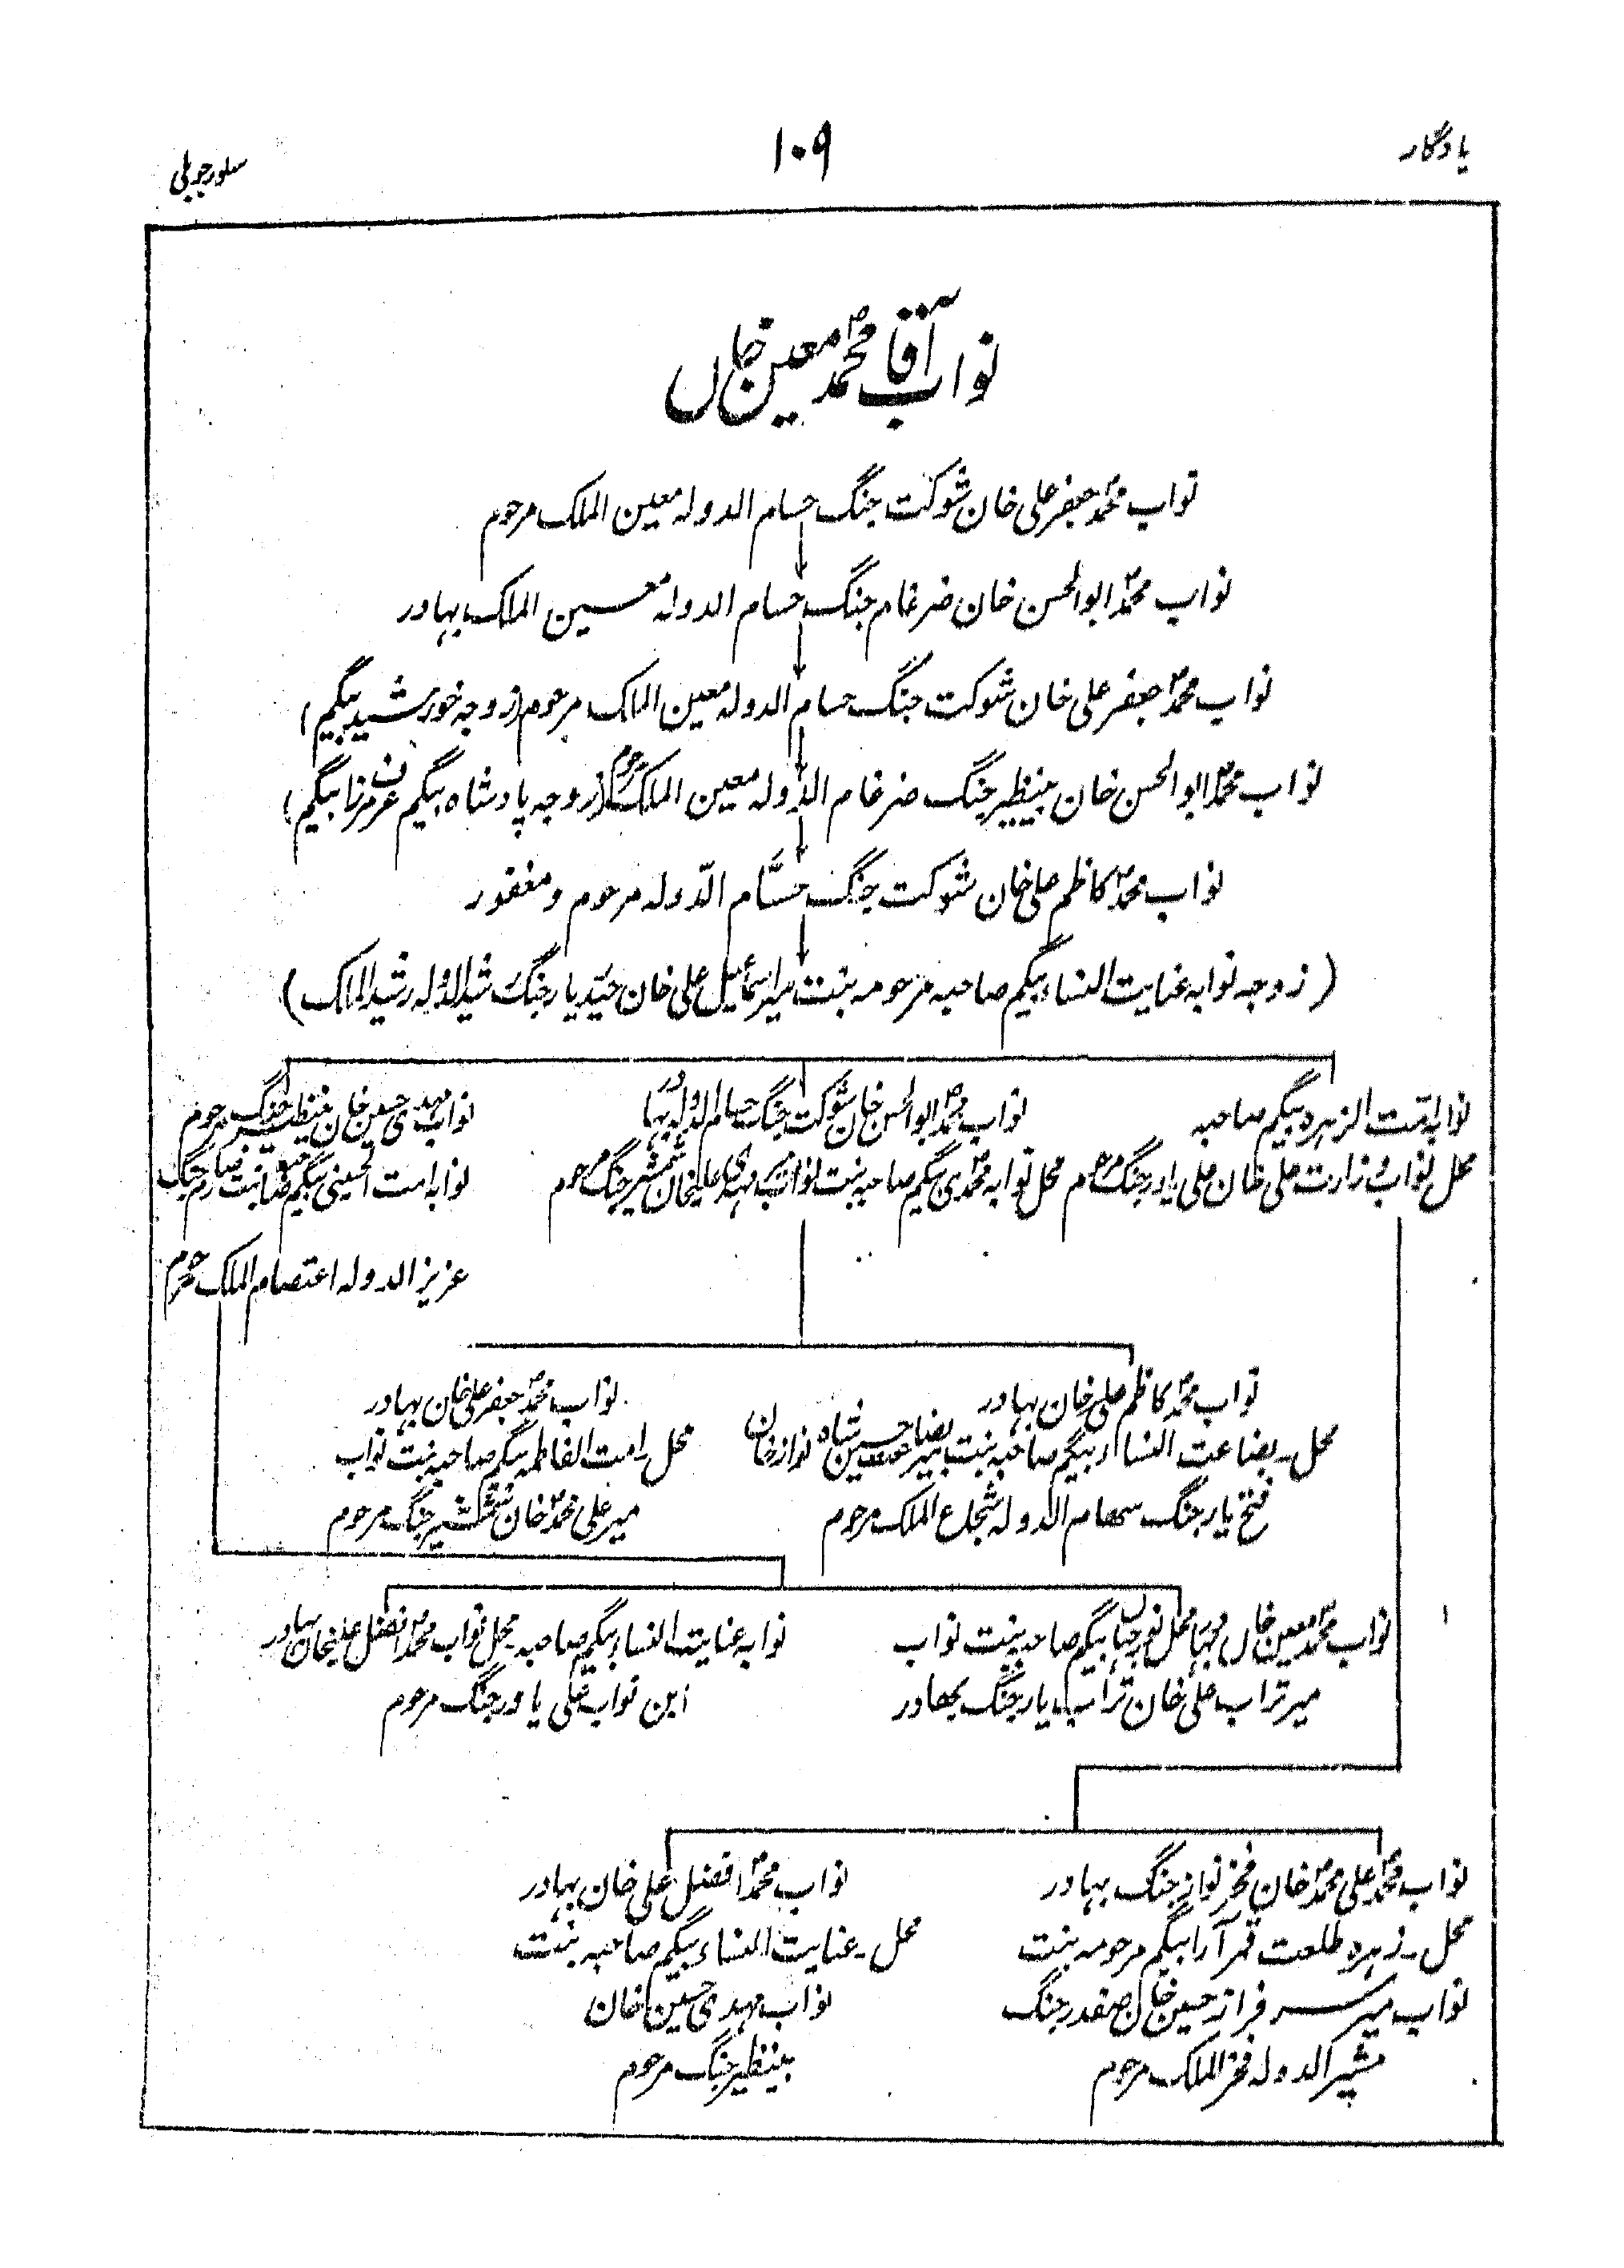 یادگار
۱۰۹
سلور جوبلی
نواب آقا محمد معین خاں
نواب محمد جعفر علی خان شوکت جنگ حسام الدولہ معین الملک مرحوم
نواب محمد ابوالحسن خان ضرغام جنگ حسام الدولہ معین الملک بہادر
نواب محمد جعفر علی خان شوکت جنگ حسام الدولہ معین الملک مرحوم (زوجہ خورشید بیگم)
نواب محمد ابوالحسن خان بینظیر جنگ ضرغام الدولہ معین الملک مرحوم (زوجہ پادشاہ بیگم عرف مرزا بیگم)
نواب محمد کاظم علی خان شوکت جنگ حسّام الدّولہ مرحوم و مغفور
(زوجہ نوابہ عنایت النساء بیگم صاحبہ مرحومہ بنت میر اسماعیل علی خان حیدر یار جنگ رشید الدولہ رشید الملک)
نوابہ امت الزہرہ بیگم صاحبہ
محل نواب وزارت علی خان علی یاور جنگ مرحوم
نواب محمد ابوالحسن خان شوکت جنگ حسام الدولہ بہادر
محل نوابہ محمدی بیگم صاحبہ بنت نواب میر مہدی علیخان شمشیر جنگ مرحوم
نواب مہدی حسین خان بینظیر جنگ مرحوم
نوابہ امت الحسینی بیگم صاحبہ بنت صارم جنگ
عزیز الدولہ اعتصام الملک مرحوم
نواب محمد کاظم علی خان بہادر
محل۔ بضاعت النساء بیگم صاحبہ بنت میر رضا حسین شاہ نواز خان
فتح یار جنگ سھام الدولہ شجاع الملک مرحوم
نواب محمد جعفر علی خان بہادر
محل۔ امت الفاطمہ بیگم صاحبہ بنت نواب
میر علی محمد خان شمشیر جنگ مرحوم
نواب محمد معین خاں بہادر محل نور جہاں بیگم صاحبہ بنت نواب
میر تراب علی خان تراب یار جنگ بھادر
نوابہ عنایت النساء بیگم صاحبہ محل نواب محمد افضل علیخان بہادر
ابن نواب علی یاور جنگ مرحوم
نواب محمد علی محمد خان فخر نواز جنگ بہادر
محل۔ زہرہ طلعت قمر آرا بیگم مرحومہ بنت
نواب میر سرفراز حسین خان صفدر جنگ
مشیر الدولہ فخر الملک مرحوم
نواب محمد افضل علی خان بہادر
محل۔ عنایت النساء بیگم صاحبہ بنت
نواب مہدی حسین خان
بینظیر جنگ مرحوم